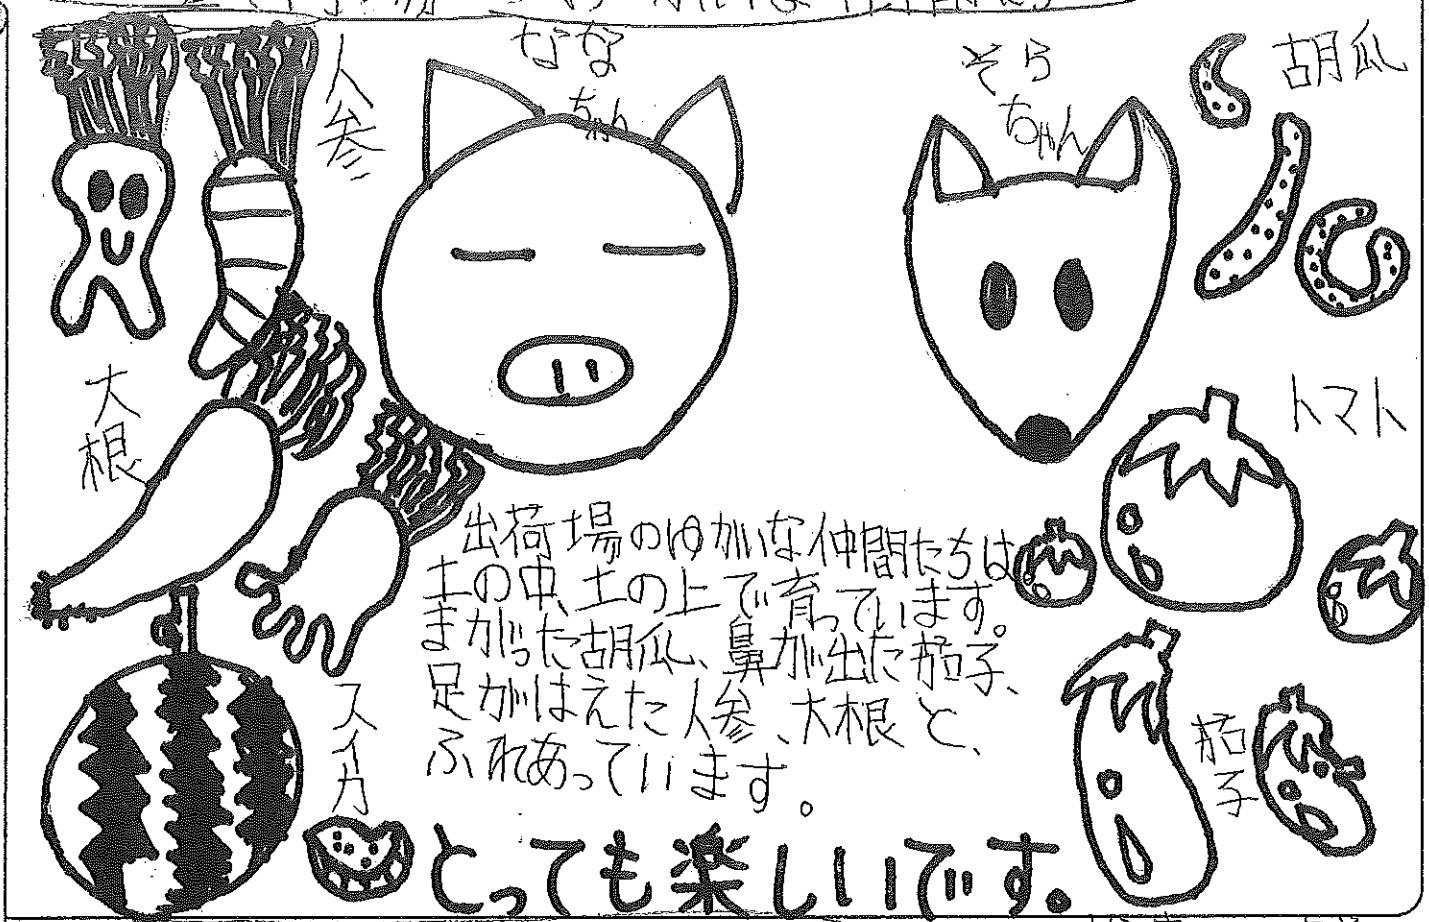 人参
なな
ちゃん
そら
ちゃん
胡瓜
大根
トマト
出荷場のゆかいな仲間たちは
土の中、土の上で育っています。
まがった胡瓜、鼻が出た茄子、
足がはえた人参、大根と、
ふれあっています。
スイカ
茄子
とっても楽しいです。